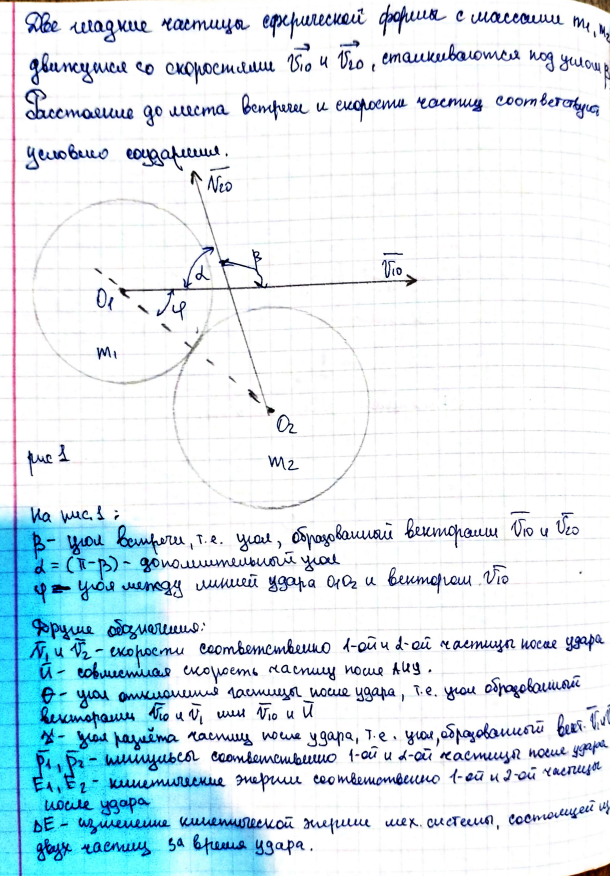 Две гладкие частицы сферической формы с массами m₁, m₂
движутся со скоростями V₁₀ и V₂₀, сталкиваются под углом β
Расстояние до места встречи и скорости частиц соответствуют
условию соударения.
V₂₀
β
α
V₁₀
O₁
φ
m₁
O₂
m₂
рис 1
На рис. 1:
β - угол встречи, т.е. угол, образованный векторами V₁₀ и V₂₀
α = (π-β) - дополнительный угол
φ - угол между линией удара O₁O₂ и вектором V₁₀
Другие обозначения:
V₁ и V₂ - скорости соответственно 1-ой и 2-ой частицы после удара
U - совместная скорость частиц после АНУ.
θ - угол отклонения частицы после удара, т.е. угол образованный
векторами V₁₀ и V₁ или V₁₀ и U
γ - угол разлёта частиц после удара, т.е. угол, образованный вект. V₁ и V
p₁, p₂ - импульсы соответственно 1-ой и 2-ой частицы после удара
E₁, E₂ - кинетические энергии соответственно 1-ой и 2-ой частицы
после удара
ΔE - изменение кинетической энергии мех. системы, состоящей из
двух частиц за время удара.